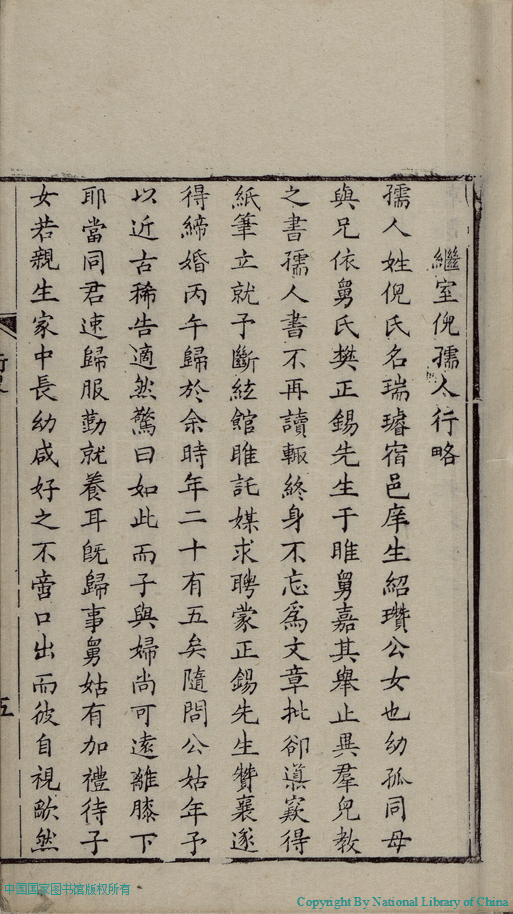 繼室倪孺人行略
孺人姓倪氏名瑞璿宿邑庠生紹瓚公女也幼孤同母
與兄依舅氏樊正錫先生于睢舅嘉其舉止異羣兒教
之書孺人書不再讀輒終身不忘爲文章批卻導窾得
紙筆立就予斷絃館睢託媒求聘蒙正錫先生贊襄遂
得締婚丙午歸於余時年二十有五矣隨問公姑年予
以近古稀告適然驚曰如此而子與婦尚可遠離膝下
耶當同君速歸服勤就養耳既歸事舅姑有加禮待子
女若親生家中長幼咸好之不啻口出而彼自視歉然
行畧
五
中国国家图书馆版权所有
Copyright By National Library of China